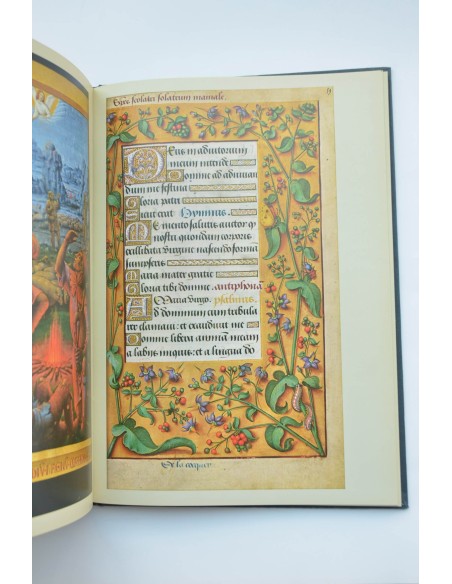 Dyes scolater solatrum maiale.
Deus in adiutorium
meum intende
Domine ad adiuvan
dum me festina
Gloria patri
Sicut erat Hymnus.
Memento salutis auctor q̃
nostri quondam corporis
ex illibata virgine nascendo forma
sumpseris
Maria mater gratie
Gloria tibi domine antiphona
Maria virgo. psalmus.
Ad dominum cum tribula
rer clamaui: et exaudiuit me
Domine libera animã meam
a labiis iniquis: et a lingua do
De la coquer